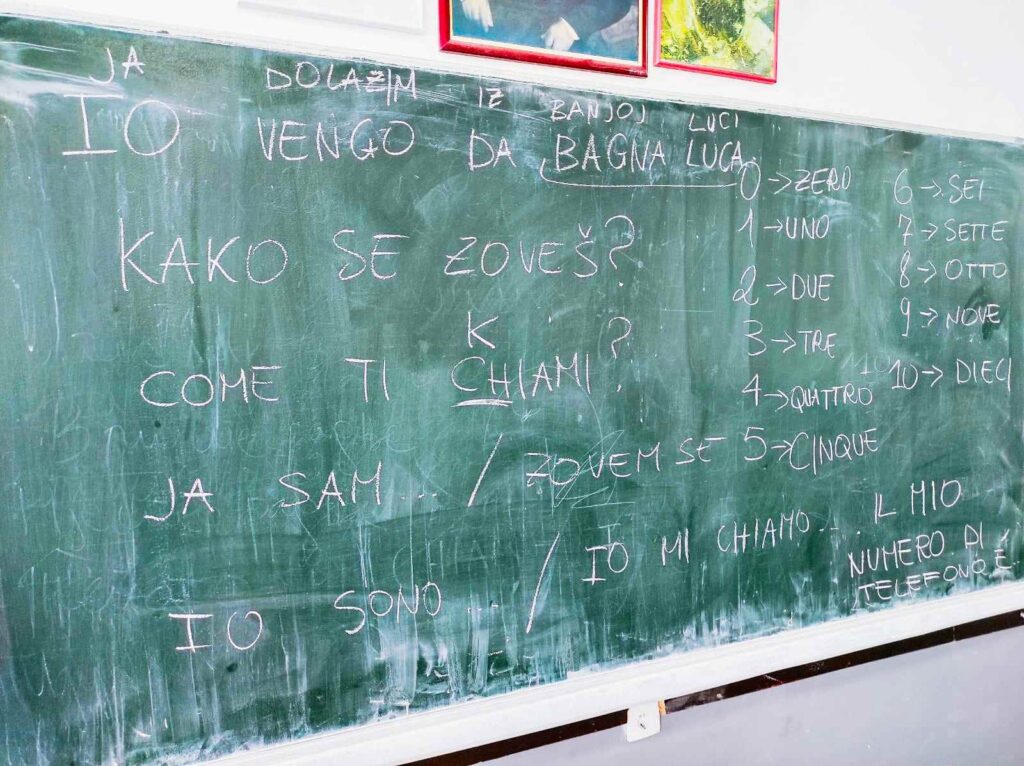 JA DOLAZIM IZ BANJOJ LUCI
IO VENGO DA BAGNA LUCA
KAKO SE ZOVEŠ?
K
COME TI CHIAMI?
JA SAM... / ZOVEM SE
IO SONO... / IO MI CHIAMO...
0→ZERO
1→UNO
2→DUE
3→TRE
4→QUATTRO
5→CINQUE
6→SEI
7→SETTE
8→OTTO
9→NOVE
10→DIECI
IL MIO
NUMERO DI
TELEFONO É